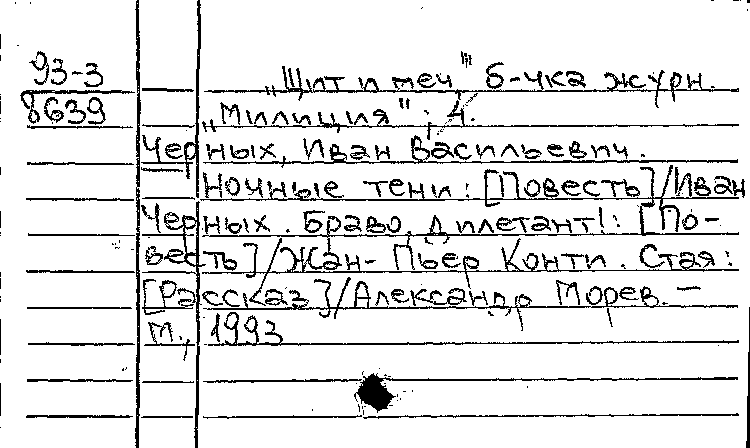 93-3 „Щит и меч" б-чка журн.
8639 „Милиция"; 4.
Черных, Иван Васильевич.
Ночные тени: [Повесть]/Иван
Черных. Браво, дилетант!: [По-
весть]/Жан-Пьер Конти. Стая:
[Рассказ]/Александр Морев. —
М., 1993